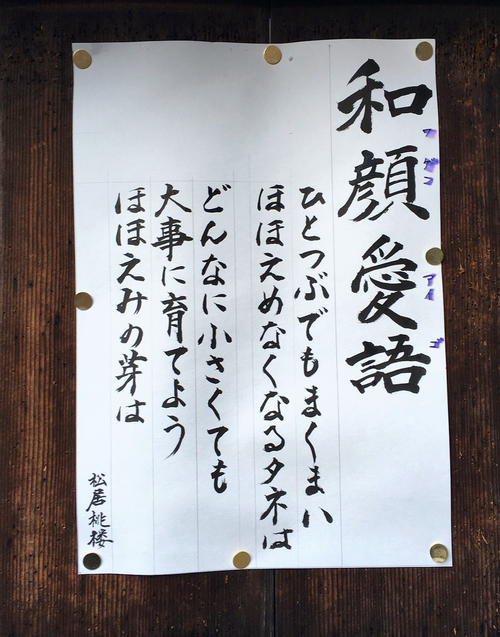 和顔愛語
ワ
ゲン
アイ
ゴ
ひとつぶでもまくまい
ほほえめなくなるタネは
どんなに小さくても
大事に育てよう
ほほえみの芽は
松居桃楼